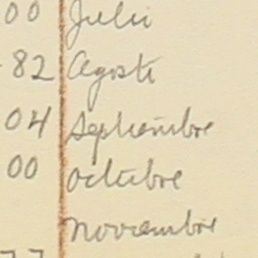 00 Julio
82 Agosto
04 Septiembre
00 Octubre
Noviembre